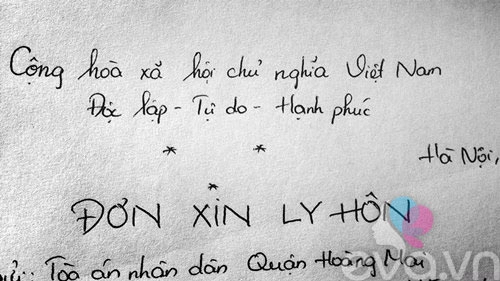 Cộng hoà xã hội chủ nghĩa Việt Nam
Độc lập - Tự do - Hạnh phúc
* * *
Hà Nội,
ĐƠN XIN LY HÔN
Toà án nhân dân Quận Hoàng Mai
eva.vn